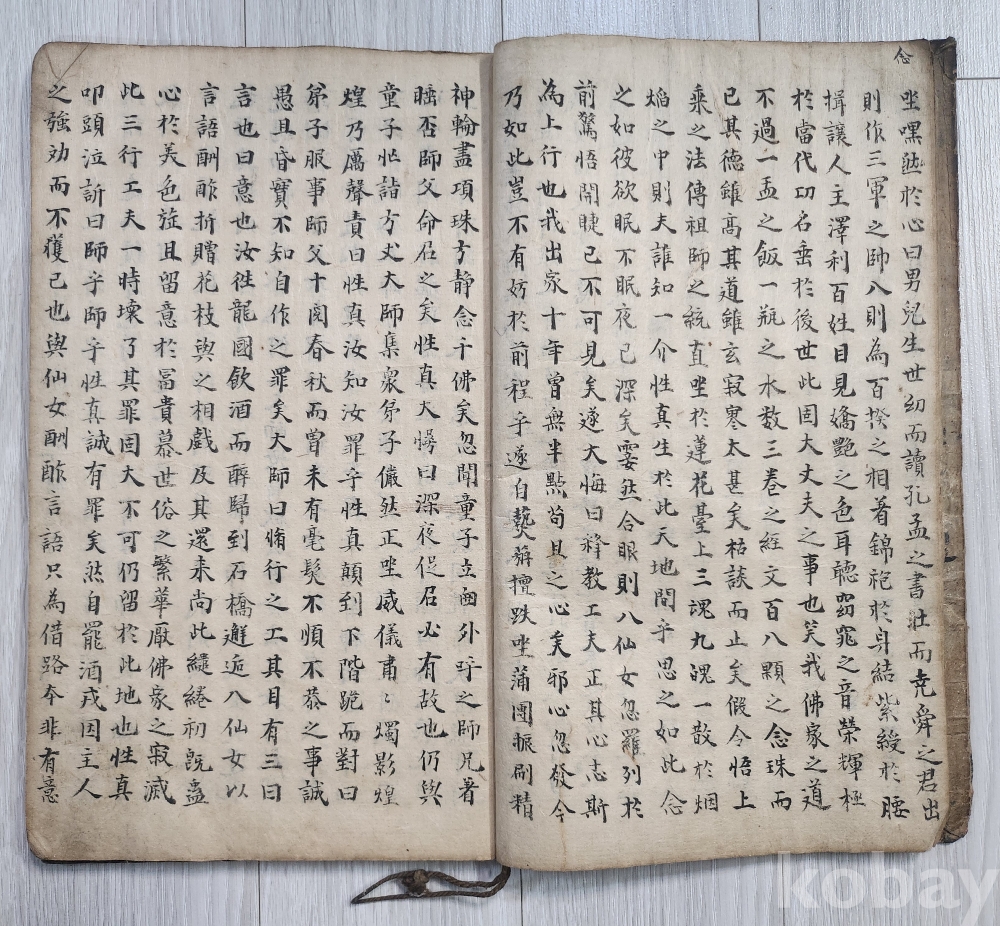 念
坐嘿然於心曰男兒生世幼而讀孔孟之書壯而堯舜之君出
則作三軍之帥入則為百揆之相着錦袍於身結紫綬於腰
揖讓人主澤利百姓目見嬌艶之色耳聽窈窕之音榮輝極
於當代功名垂於後世此固大丈夫之事也笑我佛家之道
不過一盂之飯一瓶之水数三卷之經文百八顆之念珠而
已其德雖高其道雖玄寂寥太甚矣枯談而止矣假令悟上
乘之法傳祖師之統直坐於蓮花臺上三魂九魄一散於烟
焰之中則夫誰知一介性真生於此天地間乎思之如此念
之如彼欲眠不眠夜已深矣霎然合眼則八仙女忽羅列於
前驚悟開睫已不可見矣遂大悔曰釋教工夫正其心志斯
為上行也我出家十年曾無半點苟且之心矣邪心忽發今
乃如此豈不有妨於前程乎遂自爇旃檀趺坐蒲團振刷精
神輪盡項珠方静念千佛矣忽聞童子立窓外呼之師兄着
睡否師父命召之矣性真大愕曰深夜促召必有故也仍與
童子忙詣方丈大師集衆弟子儼然正坐威儀肅〻燭影煌
煌乃厲聲責曰性真汝知汝罪乎性真顛到下階跪而對曰
弟子服事師父十閱春秋而曽未有毫髮不順不恭之事誠
愚且昏實不知自作之罪矣大師曰脩行之工其目有三曰
言也曰意也汝徃龍國飲酒而醉歸到石橋邂逅八仙女以
言語酬酢折贈花枝與之相戲及其還来尚此繾綣初旣蠱
心於美色旋且留意於冨貴慕世俗之繁華厭佛家之寂滅
此三行工夫一時壊了其罪固大不可仍留於此地也性真
叩頭泣訴曰師乎師乎性真誠有罪矣然自罷酒戎因主人
之強効而不獲已也與仙女酬酢言語只為借路本非有意
kobay